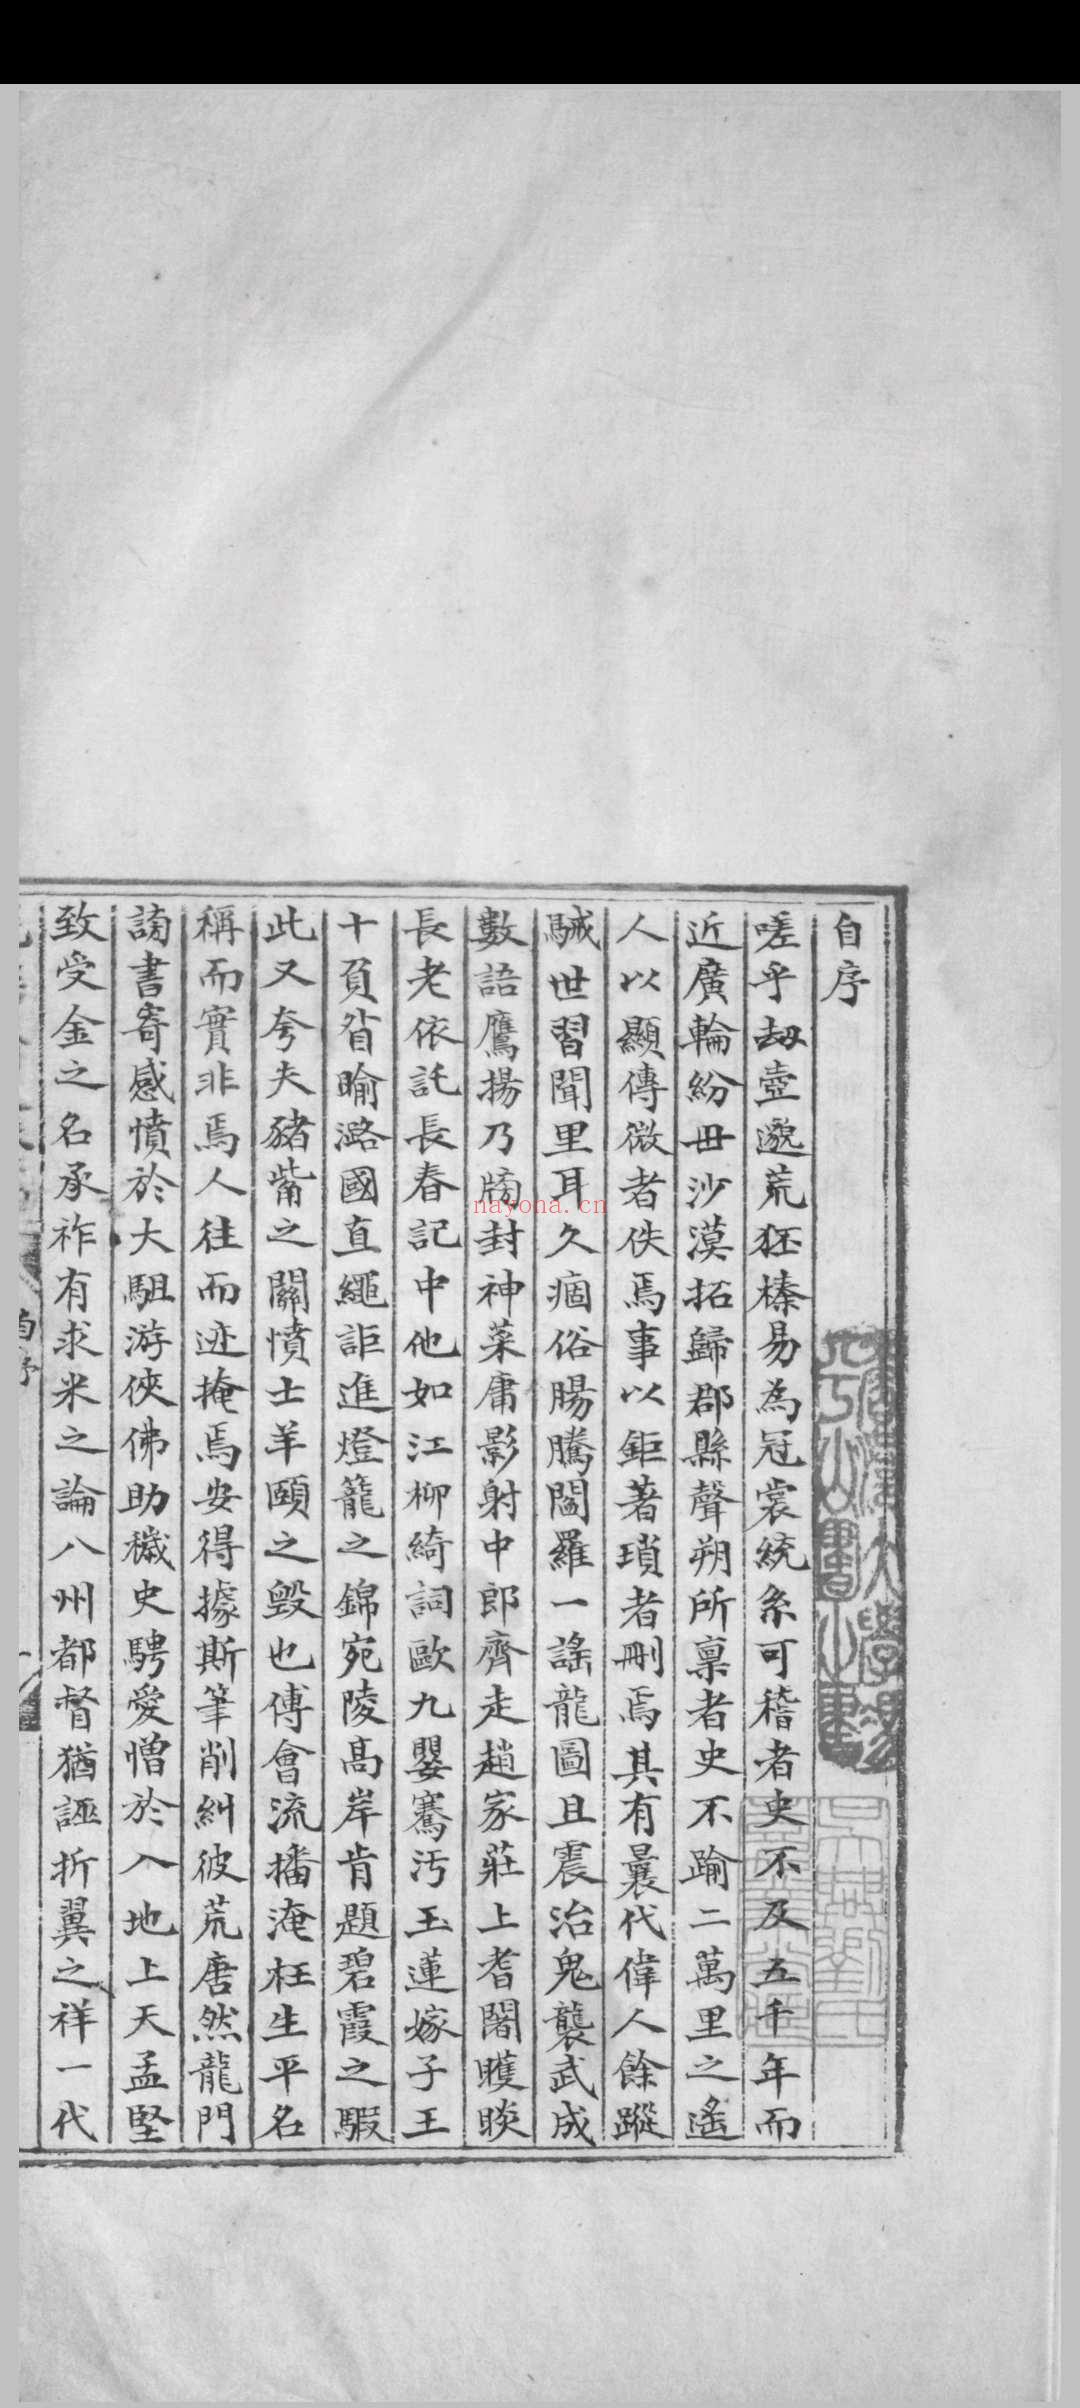 自序
嗟乎刼壺邈荒狉榛易為冠裳統系可稽者史不及五千年而
近廣輪紛毌沙漠拓歸郡縣聲朔所稟者史不踰二萬里之遙
人以顯傳微者佚焉事以鉅著瑣者刪焉其有曩代偉人餘蹤
駴世習聞里耳久痼俗腸騰閻羅一謠龍圖且震治鬼襲武成
數語鷹揚乃牓封神菜庸影射中郎齊走趙家莊上耆闍矆睒
長老依託長春記中他如江柳綺詞歐九嬰騫汚玉蓮嫁子王
十頁眢瞼潞國直繩詎進燈籠之錦宛陵高岸肯題碧霞之騢
此又夸夫豬觜之關憤士羊頤之毀也傅會流播淹枉生平名
稱而實非焉人往而迹掩焉安得據斯筆削糾彼荒唐然龍門
謗書寄感憤於大駔游俠佛助穢史騁愛憎於入地上天孟堅
致受金之名承祚有求米之論八州都督猶誣折翼之祥一代
自序
nayona.cn